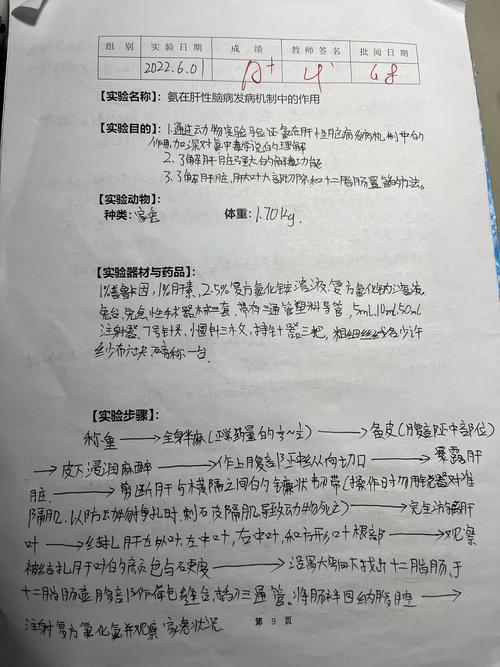 组 别 实验日期 成 绩 教师签名 批阅日期
2022.6.01 A+ 6.8
【实验名称】：氨在肝性脑病发病机制中的作用
【实验目的】：1.通过动物实验验证氨在肝性脑病发病机制中的
作用,加深对氨中毒学说的理解
2.了解肝脏强大的解毒功能
3.了解肝脏,肝大叶大部切除和十二指肠置管的方法。
【实验动物】：
种类：家兔 体重：1.70kg.
【实验器材与药品】：
1%普鲁卡因,1%肝素,2.5%复方氯化铵溶液,复方氯化钠溶液.
兔台,兔急性手术器械一套,带有三通管塑料导管,5ml,10ml,50ml
注射器,7号针头,小圆针三枚,持针器三把,粗细丝线各少许
纱布六块,磅称一台.
【实验步骤】：
称重→全身半麻(正常药量的1/3~1/2)→备皮(腹部正中部位)
→皮下浸润麻醉→作上腹部正中纵向切口→暴露肝
脏→剪断肝与横隔之间的镰状韧带(操作时勿用锐器对准
隔肌,以防动物剪孔时,刺破隔肌导致动物死亡)→完全游离肝
叶→结扎肝左外叶,左中叶,右中叶,和方形叶根部→观察
被结扎肝叶的颜色与硬度→沿胃大弯向下找出十二指肠,于
十二指肠壶腹部作荷包缝合,插入三通管。将肠袢回纳腹腔→
注射复方氯化氨并观察家兔状况.
第 9 页